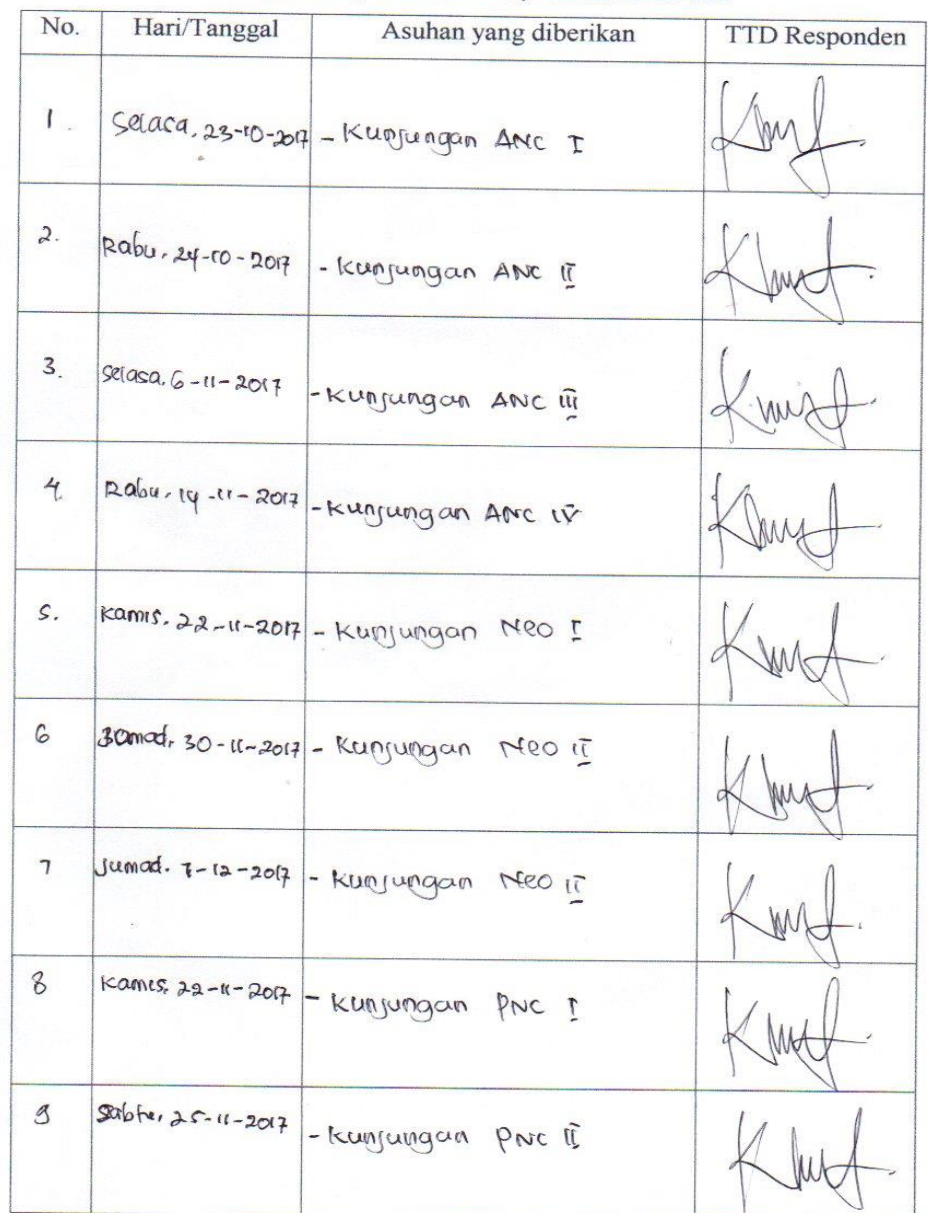 No. Hari/Tanggal Asuhan yang diberikan TTD Responden
1. Selasa, 23-10-2017 - Kunjungan ANC I
2. Rabu, 24-10-2017 - Kunjungan ANC II
3. Selasa, 6-11-2017 - Kunjungan ANC III
4. Rabu, 14-11-2017 - Kunjungan ANC IV
5. Kamis, 22-11-2017 - Kunjungan Neo I
6 Jumad, 30-11-2017 - Kunjungan Neo II
7 Jumad. 7-12-2017 - Kunjungan Neo II
8 Kamis, 22-11-2017 - Kunjungan PNC I
9 Sabtu, 25-11-2017 - Kunjungan PNC II